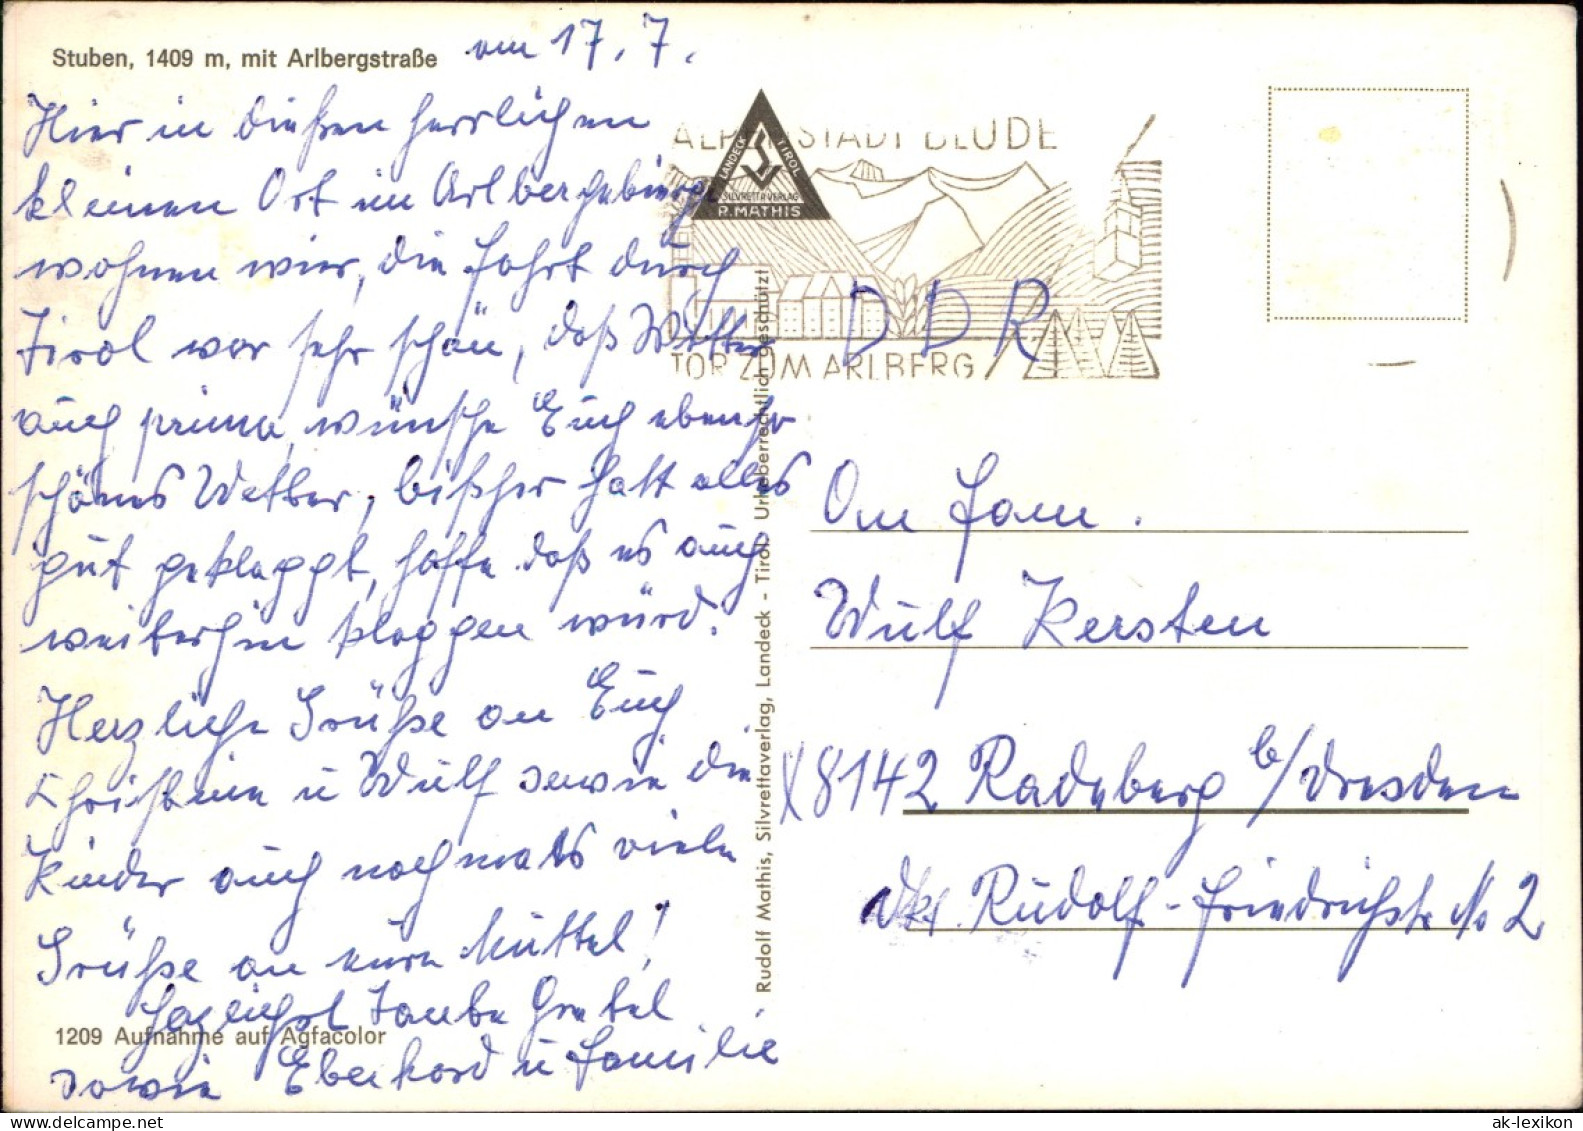 Stuben, 1409 m, mit Arlbergstraße
am 17. 7.
Hier in dießen herrlichen
kleinen Ort im Arlbergebirge
wohnen wir, die Fahrt durch
Tirol war sehr schön, daß Wetter
auch prima, wünsche Euch ebenso
schönes Wetter, bißher hatt alles
gut geklappt, hoffe daß es auch
weiterhin klappen würd.
Herzliche Grüße an Euch
Christine u Wulf sowie die
Kinder auch nochmals viele
Grüße an eure Muttel!
Herzlichst Tante Gretel
sowie Eberhard u Familie
1209 Aufnahme auf Agfacolor
Rudolf Mathis, Silvrettaverlag, Landeck - Tirol. Urheberrechtlich geschützt
LANDECK TIROL
SILVRETTAVERLAG
R. MATHIS
ALPENSTADT BLUDE
TOR ZUM ARLBERG
DDR
An Fam.
Wulf Kersten
X8142 Radeberg b/Dresden
Rudolf-Friedrichstr No 2
ak-lexikon